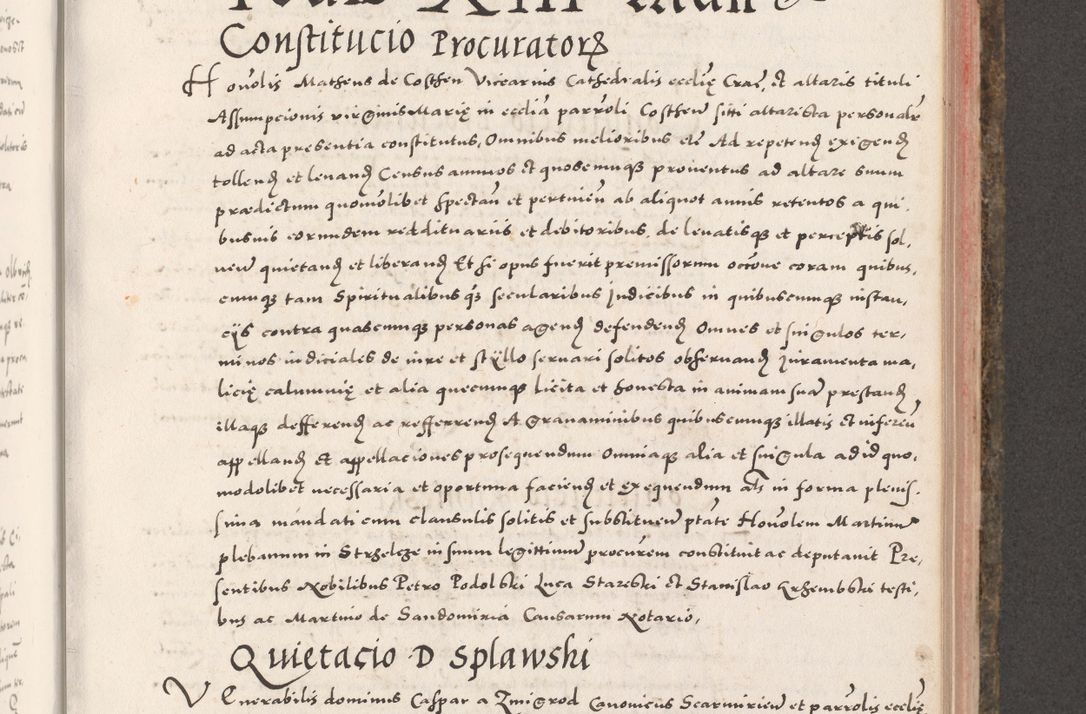 Constitucio Procuratorꝝ
Honolis Matheus de Costhen Vicearius Cathedralis ecclię Crac, et altaris tituli
Assumpcionis virginis Marię in ecclia parroli Costhen sitti altarista personalr
ad acta presentia constitutus, Omnibus melioribus etc Ad repetend exigend
tollend et leuand Census annuos et quoscumqꝫ prouentus ad altare suum
prædictum quomolibet spectan et pertinen ab aliquot annis retentos a qui,
busuis eorundem reddituariis et debitoribus, de leuatisqꝫ et perceptis sol,
uen quietand et liberand Et si opus fuerit premissorum occone coram quibus,
cumqꝫ tam Spiritualibus qꝫ secularibus Judicibus in quibuscumqꝫ instan,
cijs contra quascumqꝫ personas agend defendend Omnes et singulos ter,
minos iudiciales de iure et styllo seruari solitos obseruand Juramenta ma,
licię calumnię et alia quecumqꝫ licita et honesta in animam sua prestand
illaqꝫ defferend ac refferrend A Grauaminibus quibuscumqꝫ illatis et inferen
appelland Et appellaciones prosequendum Omniaqꝫ alia et singula ad id quo,
modolibet necessaria et oportuna faciend et exequendum als in forma plenis,
sima mandati cum clausulis solitis et substituen ptate Honolem Martinu
plebanum in Strzelcze in suum legittimu procurem constituit ac deputauit Pre,
sentibus Nobilibus Petro Podolski Luca Stareski et Stanislao Krzembski testi,
bus ac Martino de Sandomiria Causarum Notario,
Quietacio D Splawski
Venerabilis dominus Caspar a Zmigrod Canonicus Scarmirien et parrolis ecclię